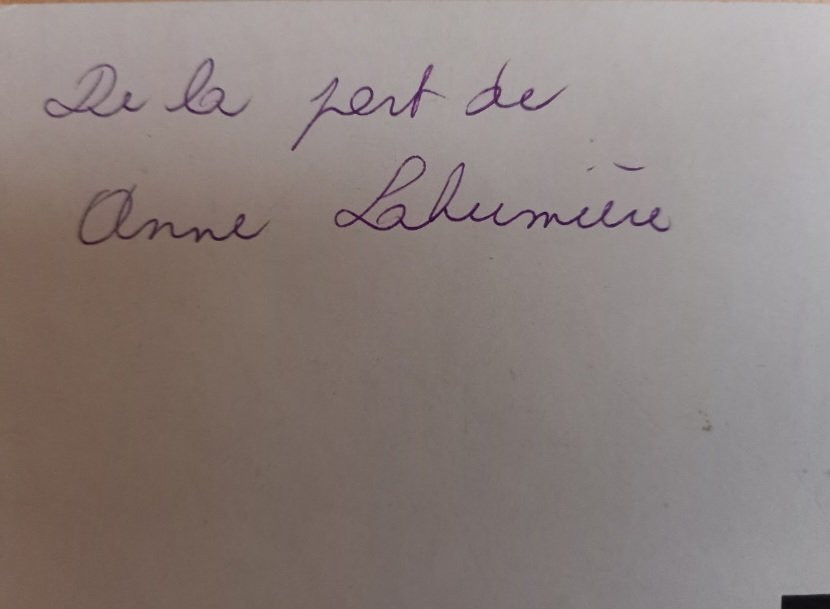 De la part de
Anne Lahumière